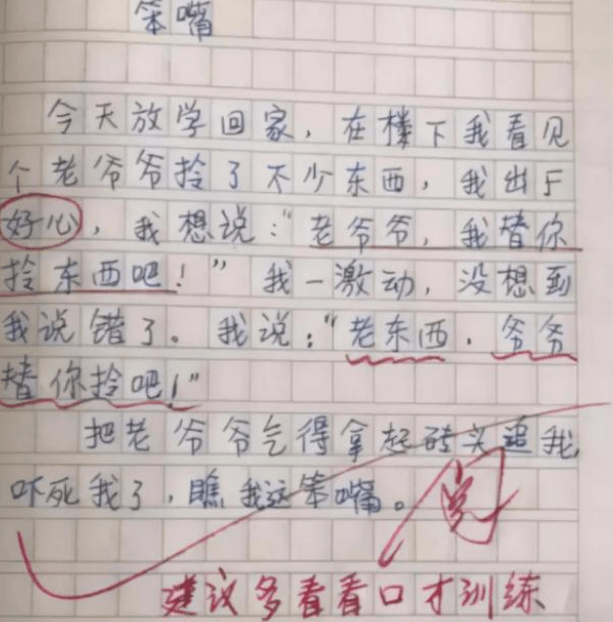 笨嘴
今天放学回家，在楼下我看见
个老爷爷拎了不少东西，我出于
好心，我想说：“老爷爷，我替你
拎东西吧！”我一激动，没想到
我说错了。我说：“老东西，爷爷
替你拎吧！”
把老爷爷气得拿起砖头追我
吓死我了，瞧我这笨嘴。
建议多看看口才训练